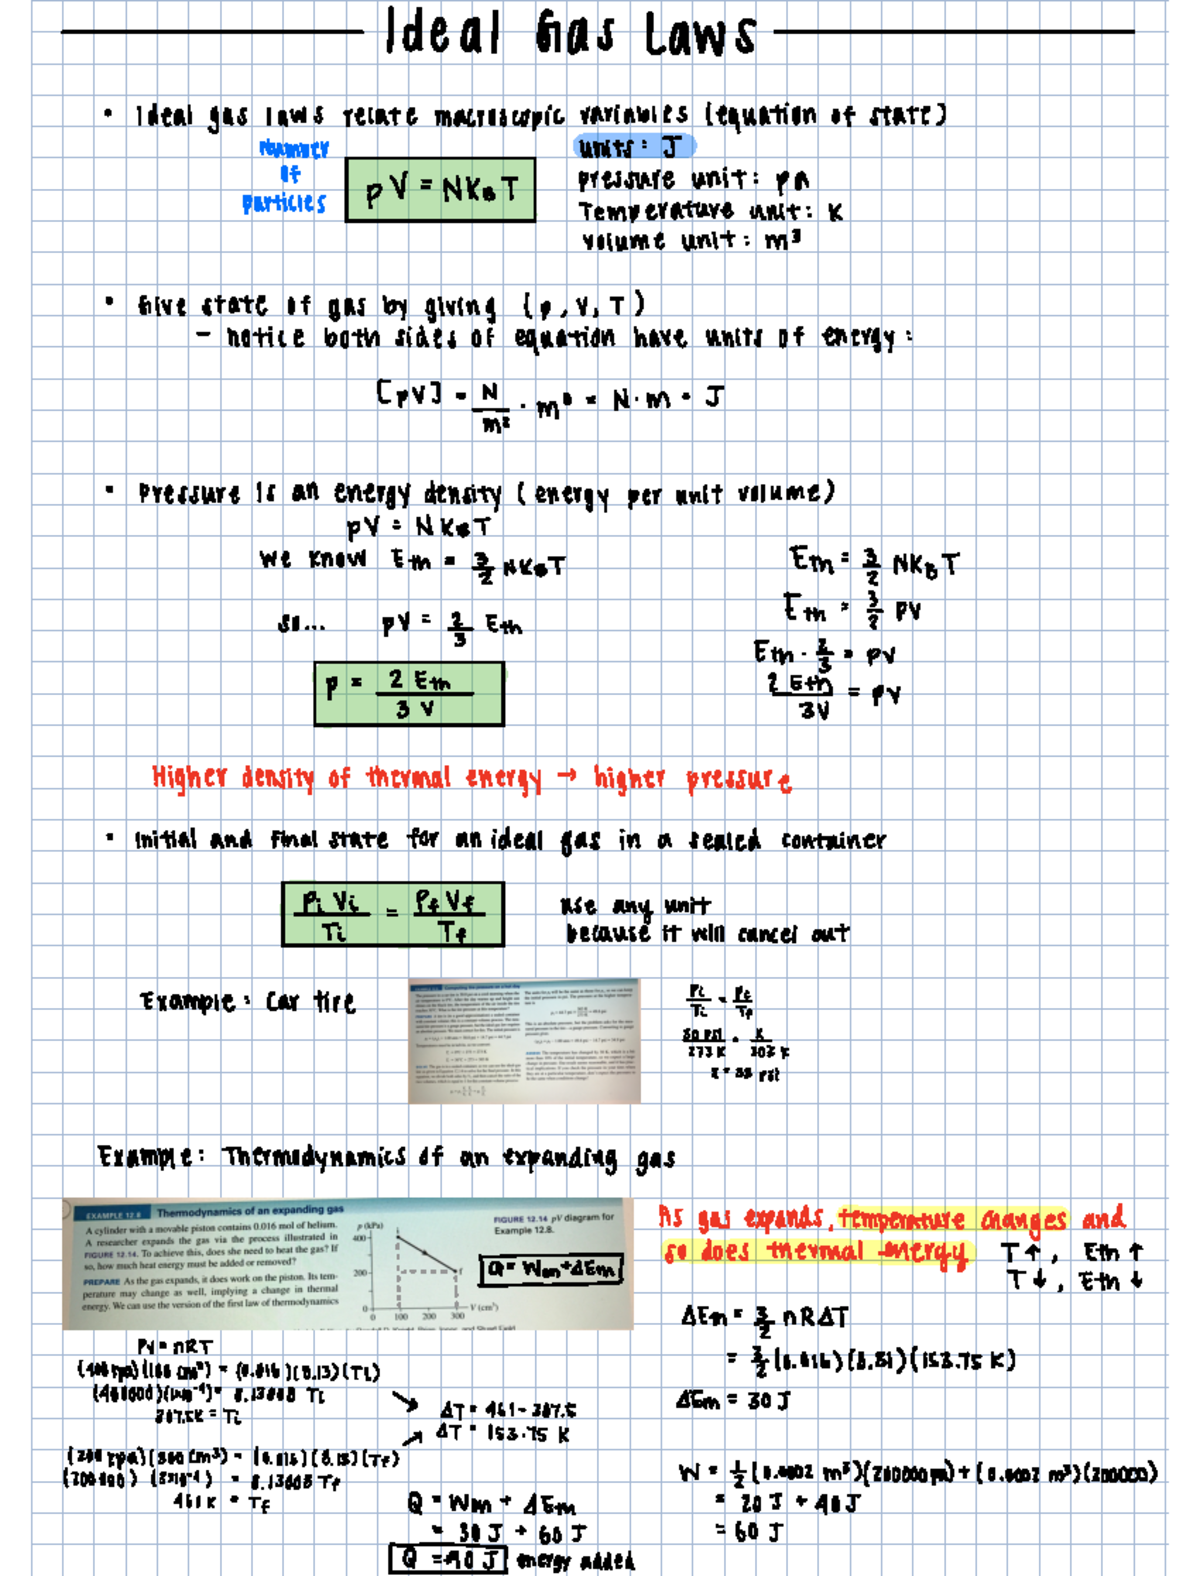 Ideal Gas Laws
• Ideal gas laws relate macroscopic variables (equation of state)
Number of particles
pV = NKBT
units: J
pressure unit: pa
Temperature unit: K
volume unit: m³
• Give state of gas by giving (p, V, T)
– notice both sides of equation have units of energy:
[pV] = N/m² · m³ = N·m = J
• Pressure is an energy density (energy per unit volume)
pV = NKBT
we know Eth = 3/2 NKBT
so... pV = 2/3 Eth
p = 2 Eth / 3 V
Eth = 3/2 NKBT
Eth = 3/2 PV
Eth · 2/3 = PV
2 Eth / 3V = PV
Higher density of thermal energy → higher pressure
• Initial and Final state for an ideal gas in a sealed container
Pi Vi / Ti = Pf Vf / Tf
use any unit
because it will cancel out
Example: Car tire
Pi/Ti = Pf/Tf
303 K
Example: Thermodynamics of an expanding gas
EXAMPLE 12.8 Thermodynamics of an expanding gas
A cylinder with a movable piston contains 0.016 mol of helium.
A researcher expands the gas via the process illustrated in
FIGURE 12.14. To achieve this, does she need to heat the gas? If
so, how much heat energy must be added or removed?
PREPARE As the gas expands, it does work on the piston. Its tem-
perature may change as well, implying a change in thermal
energy. We can use the version of the first law of thermodynamics
p (kPa)
400
200
0
0 100 200 300
V (cm³)
FIGURE 12.14 pV diagram for
Example 12.8.
Q = Wm + ΔEth
As gas expands, temperature changes and
so does thermal energy
T↑, Eth ↑
T↓, Eth ↓
ΔEth = 3/2 nRΔT
= 3/2 (0.016)(8.31)(153.75 K)
ΔEth = 30 J
PV = nRT
307.5K = Ti
461K = Tf
ΔT = 461 - 307.5
ΔT = 153.75 K
Q = Wm + ΔEth
= 30 J + 60 J
Q = 90 J energy added
W = 1/2 (0.0002 m³)(200000 pa) + (0.0002 m³)(200000)
= 20 J + 40 J
= 60 J